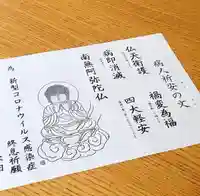 病人祈安の文
禍変為福
四大軽安
仏天衛護
病即消滅
南無阿弥陀仏
為 新型コロナウイルス感染症
終息祈願